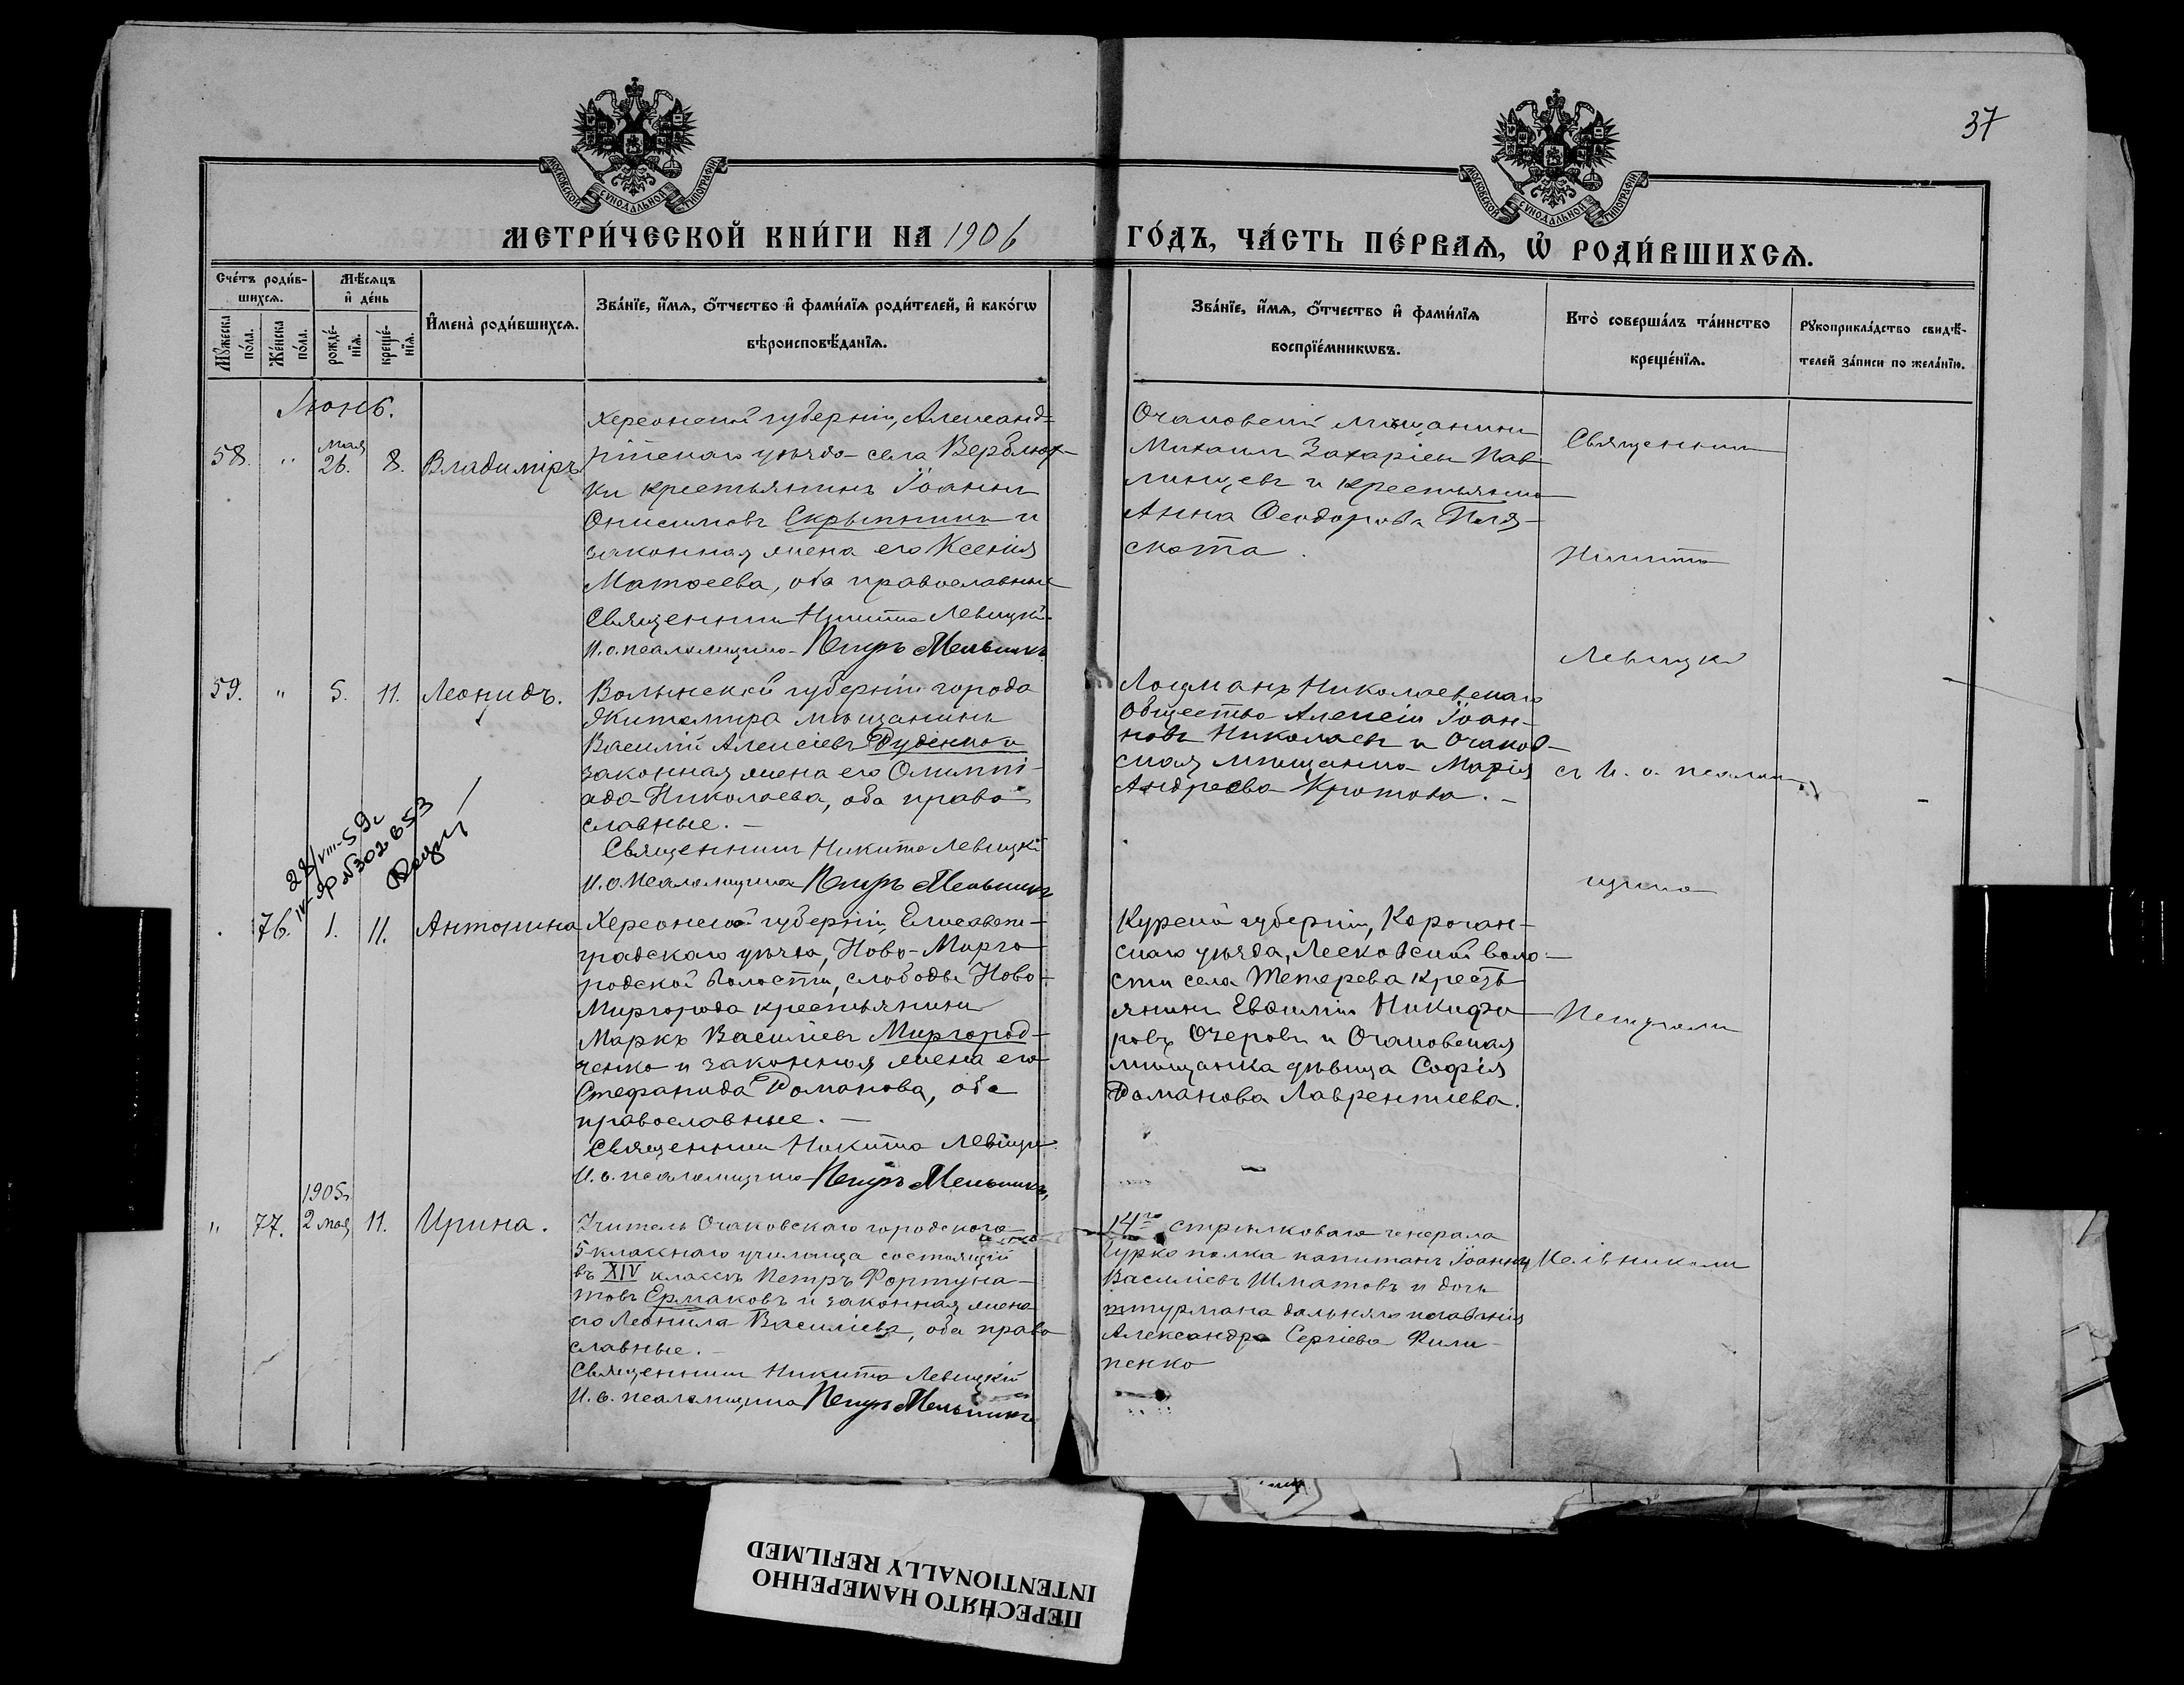 37
МОСКОВСКОЙ СѴНОДАЛЬНОЙ ТИПОГРАФІИ
МОСКОВСКОЙ СѴНОДАЛЬНОЙ ТИПОГРАФІИ
МЕТРИ́ЧЕСКОЙ КНИ́ГИ НА 1906
ГО́ДЪ, ЧА́СТЬ ПЕ́РВАѦ, Ѡ҆ РОДИ́ВШИХСѦ.
Сче́тъ роди́в-
шихсѧ.
Мѣ́сѧцъ
и҆ де́нь
Мꙋ́жеска
по́ла.
Же́нска
по́ла.
рожде́-
нїѧ.
креще́-
нїѧ.
И҆мена̀ роди́вшихсѧ.
Зва́нїе, и҆́мѧ, ѻ҆́тчество и҆ фами́лїѧ роди́телей, и҆ како́гѡ
вѣроисповѣ́данїѧ.
Зва́нїе, и҆́мѧ, ѻ҆́тчество и҆ фами́лїѧ
воспрїе́мникѡвъ.
Кто̀ соверша́лъ та́инство
креще́нїѧ.
Рꙋкоприкла́дство свидѣ́-
телей за́писи по жела́нїю.
Іюнь.
58. " мая 26. 8. Владиміръ
Херсонской губерніи, Александ-
рійскаго уѣзда села Верблюж-
ки крестьянинъ Іоаннъ
Онисимовъ Скрыпникъ и
законная жена его Ксенія
Матѳеева, оба православные
Священникъ Никита Левицкій
И. о. псаломщика Петръ Мельникъ
Очаковскій мѣщанинъ
Михаилъ Захаріевъ Пав-
линцевъ и крестьянка
Анна Ѳеодорова
Священникъ
Никита
Левицкій
59. " 5. 11. Леонидъ.
Волынской губерніи города
Житомира мѣщанинъ
Василій Алексіевъ Руденко и
законная жена его Олимпі-
ада Николаева, оба право-
славные. —
Священникъ Никита Левицкій
И. о. псаломщика Петръ Мельникъ
Лоцманъ Николаевскаго
общества Алексій Іоан-
новъ Николаевъ и Очаков-
ская мѣщанка Марія
Андреева Кротова. —
съ И. о. псалом-
щика
28/VIII-59г
IV-ЯР №302653
76. 1. 11. Антонина
Херсонской губерніи, Елисавет-
градскаго уѣзда, Ново-Мирго-
родской волости, слободы Ново-
Миргорода крестьянинъ
Маркъ Василіевъ Миргород-
ченко и законная жена его
Стефанида Романова, оба
православные. —
Священникъ Никита Левицкій
И. о. псаломщика Петръ Мельникъ
Курской губерніи, Корочан-
скаго уѣзда, Лесковской воло-
сти села Тетерева кресть-
янинъ Евѳимій Никифо-
ровъ Озеровъ и Очаковская
мѣщанка дѣвица Софія
Романова Лаврентіева.
Петромъ
" 77. 1905г. 2 мая 11. Ирина.
Учитель Очаковскаго городского
5-класснаго училища состоящій
въ XIV классѣ Петръ Фортуна-
товъ Ермаковъ и законная жена
его Леонила Василіева, оба право-
славные. —
Священникъ Никита Левицкій
И. о. псаломщика Петръ Мельникъ
14го стрѣлковаго генерала
Гурко полка капитанъ Іоаннъ
Василіевъ Шматовъ и дочь
штурмана дальняго плаванія
Александра Сергіева Фили-
пенко
Мельникомъ
ПЕРЕСНЯТО НАМЕРЕННО
INTENTIONALLY REFILMED